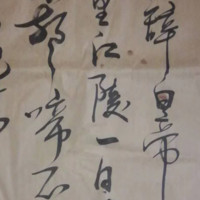 辭白帝
里江陵一日
聲啼不